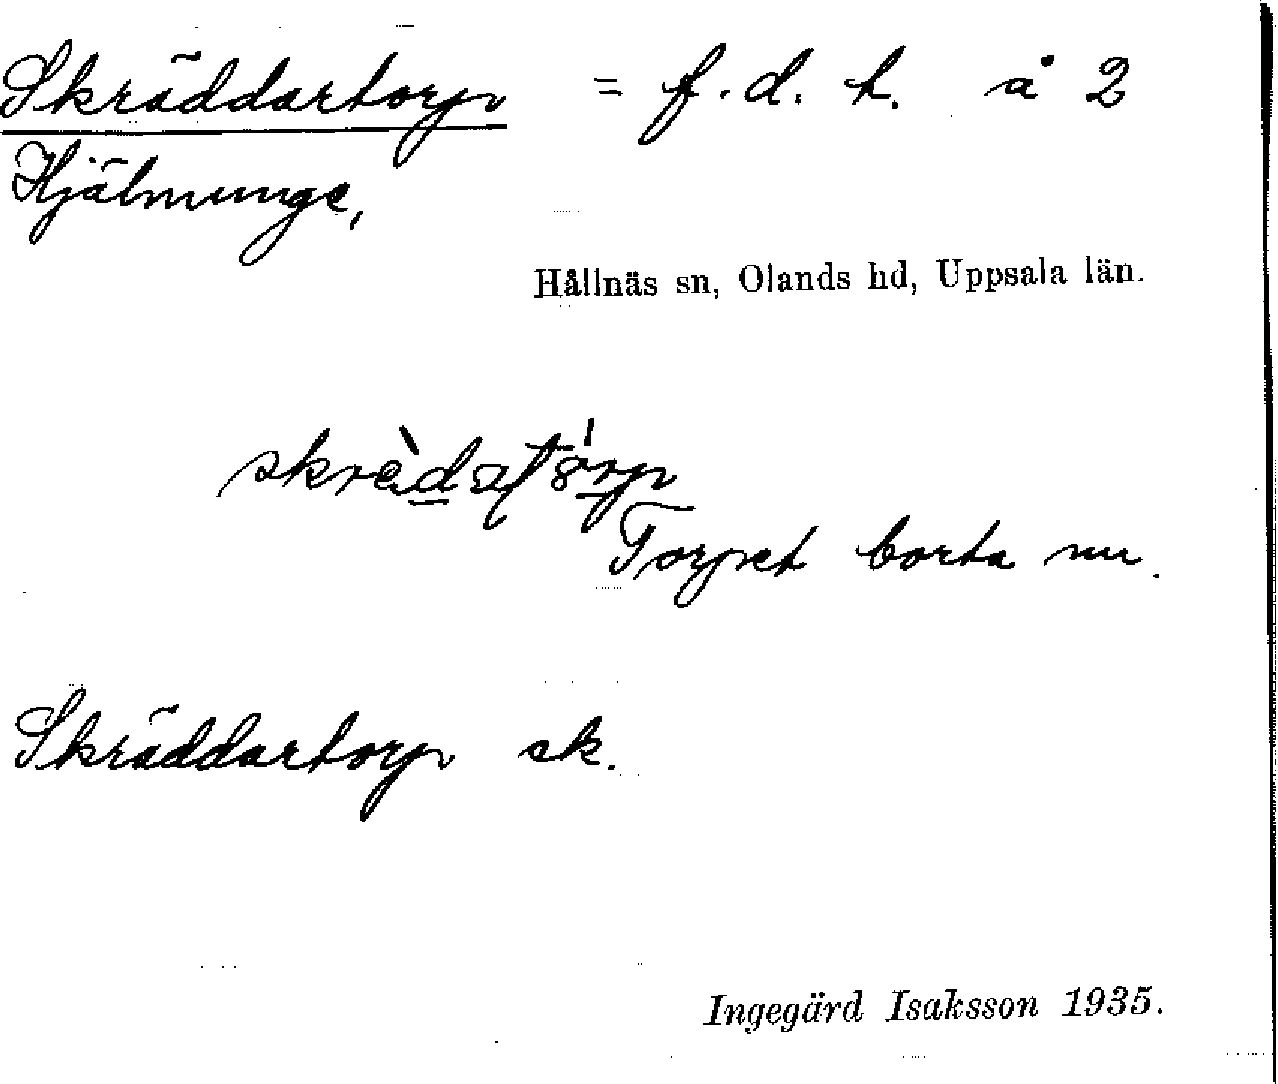 Skräddartorp = f.d. t. å 2
Hjälmunge,
Hållnäs sn, Olands hd, Uppsala län.
Torpet borta nu.
Skräddartorp sk.
Ingegärd Isaksson 1935.